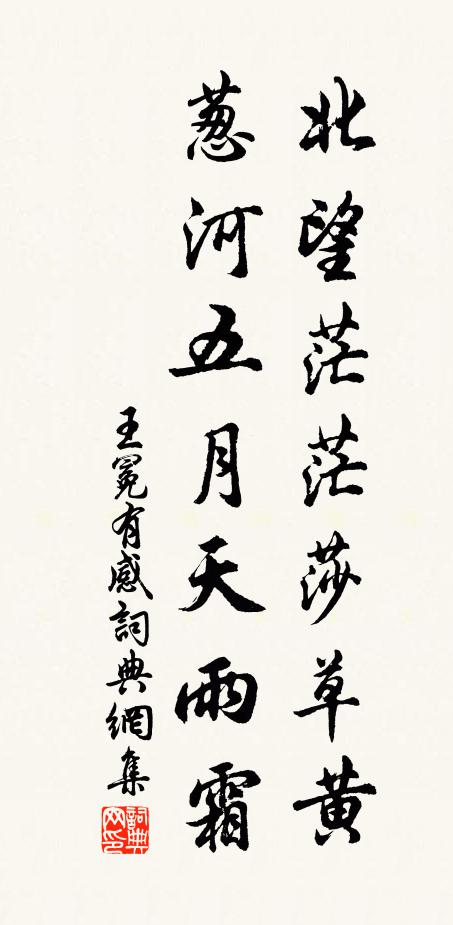 北望茫茫莎草黄
葱河五月天雨霜
王冕有感詞典網集
詞典网印